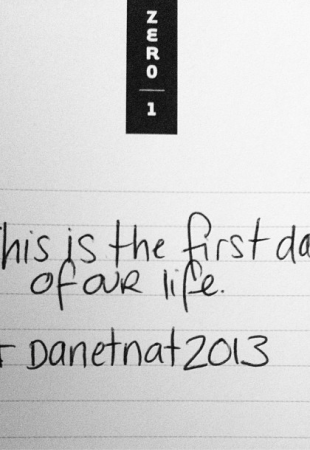 ZERO
1
his is the first da
of our life.
Danetnat2013